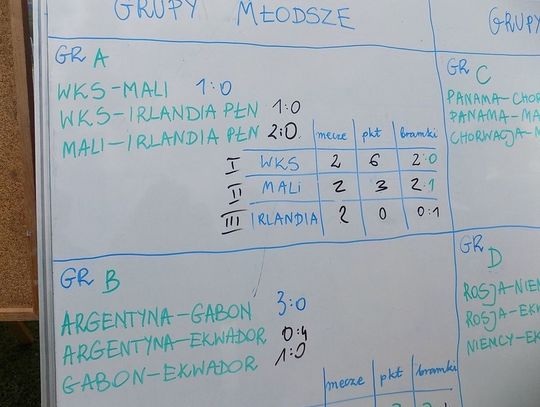 GRUPY MŁODSZE
GRUPY
GR A
WKS-MALI 1:0
WKS-IRLANDIA PŁN 1:0
MALI-IRLANDIA PŁN 2:0
mecze pkt bramki
I WKS 2 6 2:0
II MALI 2 3 2:1
III IRLANDIA 2 0 0:1
GR C
PANAMA-CHOR
PANAMA-MA
CHORWACJA-M
GR B
ARGENTYNA-GABON 3:0
ARGENTYNA-EKWADOR 0:4
GABON-EKWADOR 1:0
mecze pkt bramki
GR D
ROSJA-NIEM
ROSJA-EKW
NIEMCY-EK